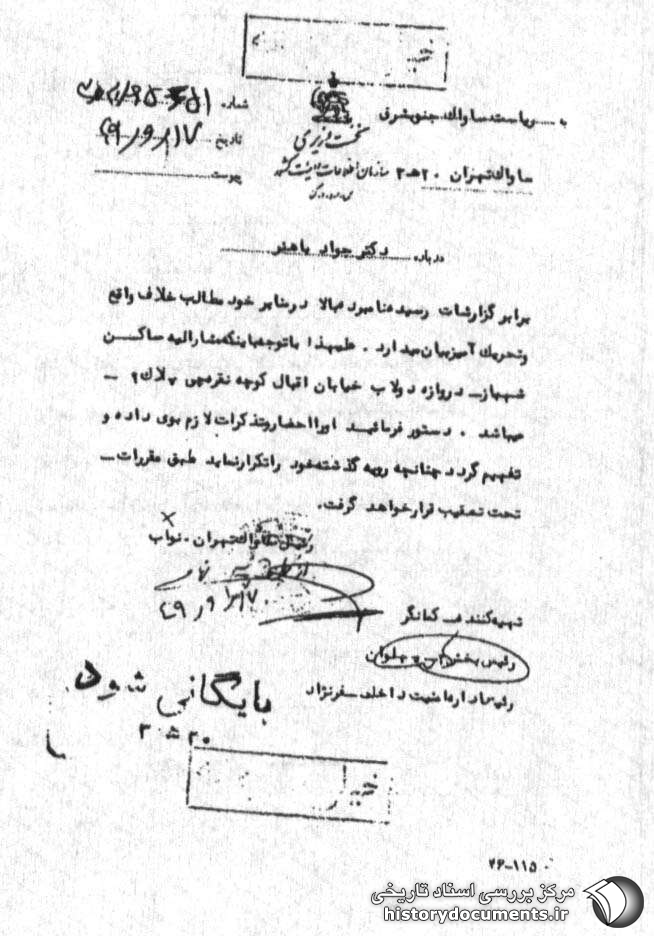 به ریاست ساواك جنوبشرق
شماره
نخست وزیری
تاریخ ۴۹ر۹ر۱۷
ساواك تهران ۲۰ هـ ۳
سازمان اطلاعات و امنیت کشور
پیوست
درباره دکتر جواد باهنر
برابر گزارشات رسیده نامبرده بالا در منابر خود مطالب خلاف واقع
وتحریك آمیز بیان میدارد . علیهذا باتوجه باینکه مشارالیه ساکــن
شهباز ـ دروازه دولاب خیابان اقبال کوچه پلاك ۹ ـ
میباشد . دستور فرمائیــد اورا احضار وتذکرات لازم بوی داده و
تفهیم گردد چنانچه رویه گذشته خود راتکرار نماید طبق مقررات ـ
تحت تعقیب قرار خواهد گرفت.
رئیس ساواك تهران ـ نواب
از طرف
تهیه کننده ـ کمانگر
رئیس بخش پهلوان
رئیس اداره امنیت داخلی ـ
بایگانی شود
۲۰ هـ ۳
۲۶-۱۱۵
مرکز بررسی اسناد تاریخی
historydocuments.ir